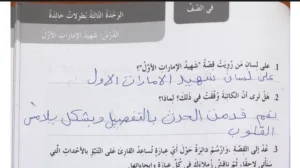 في الصّفّ
الوحدة الثالثة بطولات خالدة
الدّرس: شهيد الإمارات الأوّل
1. على لسان من رُويت قصّة "شهيد الإمارات الأوّل"؟
على لسان شهيد الامارات الاول
2. هل ترى أنّ الكاتبة وُفّقت في ذلك؟ لماذا؟
نعم قدمت الحدث بالتفصيل وبشكل يلامس
القلوب
3. عد إلى القصّة، وارسم دائرة حول أيّ عبارة تساعد القارئ على التّنبّؤ بالأحداث الّتي